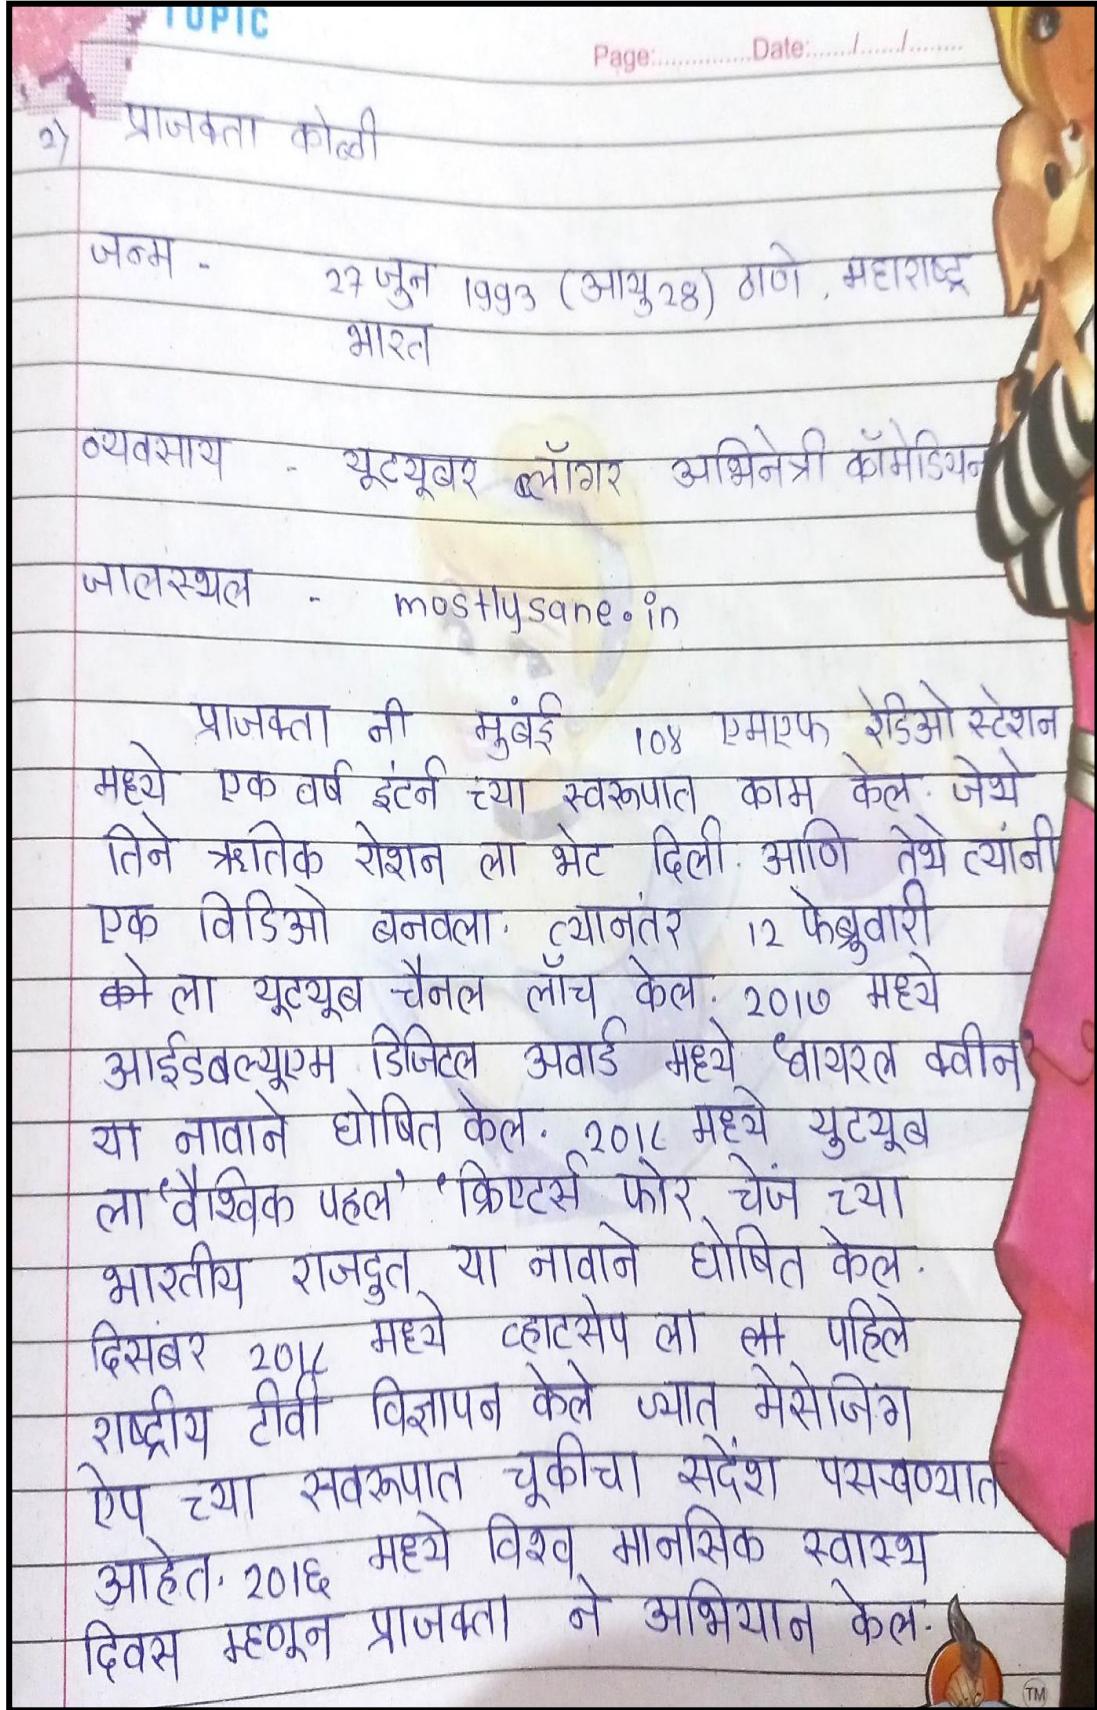 TOPIC
Page:............... Date:....../....../........
२) प्राजक्ता कोळी
जन्म - २७ जुन १९९३ (आयु २८) ठाणे, महाराष्ट्र
भारत
व्यवसाय - यूट्यूबर ब्लॉगर अभिनेत्री कॉमेडियन
जालस्थल - mostlysane.in
प्राजक्ता नी मुंबई १०४ एमएफ रेडिओ स्टेशन
मध्ये एक वर्ष इंटर्न च्या स्वरूपात काम केल. जेथे
तिने ऋतिक रोशन ला भेट दिली. आणि तेथे त्यांनी
एक विडिओ बनवला. त्यानंतर १२ फेब्रुवारी
ला यूट्यूब चैनल लॉच केल. २०१७ मध्ये
आईडबल्यूएम डिजिटल अवार्ड मध्ये 'वायरल क्वीन'
या नावाने घोषित केल. २०१८ मध्ये युट्यूब
ला 'वैश्विक पहल' 'क्रिएटर्स फोर चेंज च्या
भारतीय राजदुत या नावाने घोषित केल.
दिसंबर २०१८ मध्ये व्हाटसेप ला पहिले
राष्ट्रीय टीवी विज्ञापन केले ज्यात मेसेजिंग
ऐप च्या सवरूपात चूकीचा संदेश पसरवण्यात
आहेत. २०१६ मध्ये विश्व मानसिक स्वास्थ
दिवस म्हणून प्राजक्ता ने अभियान केल.
TM